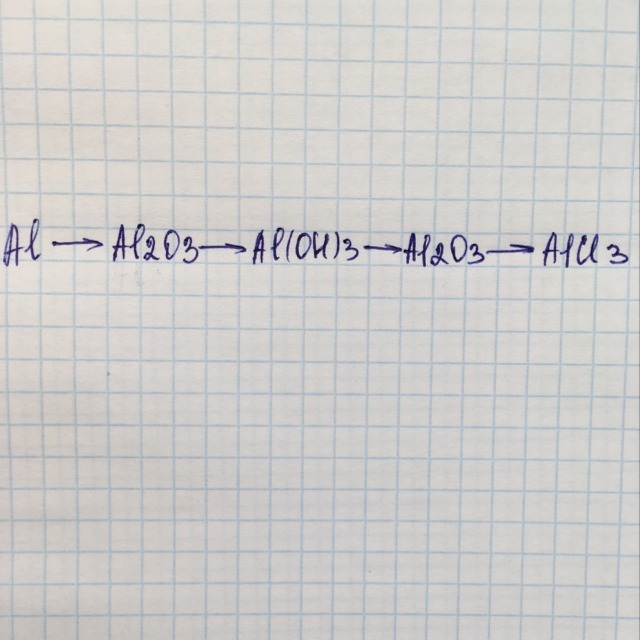 Al → Al2O3 → Al(OH)3 → Al2O3 → AlCl3